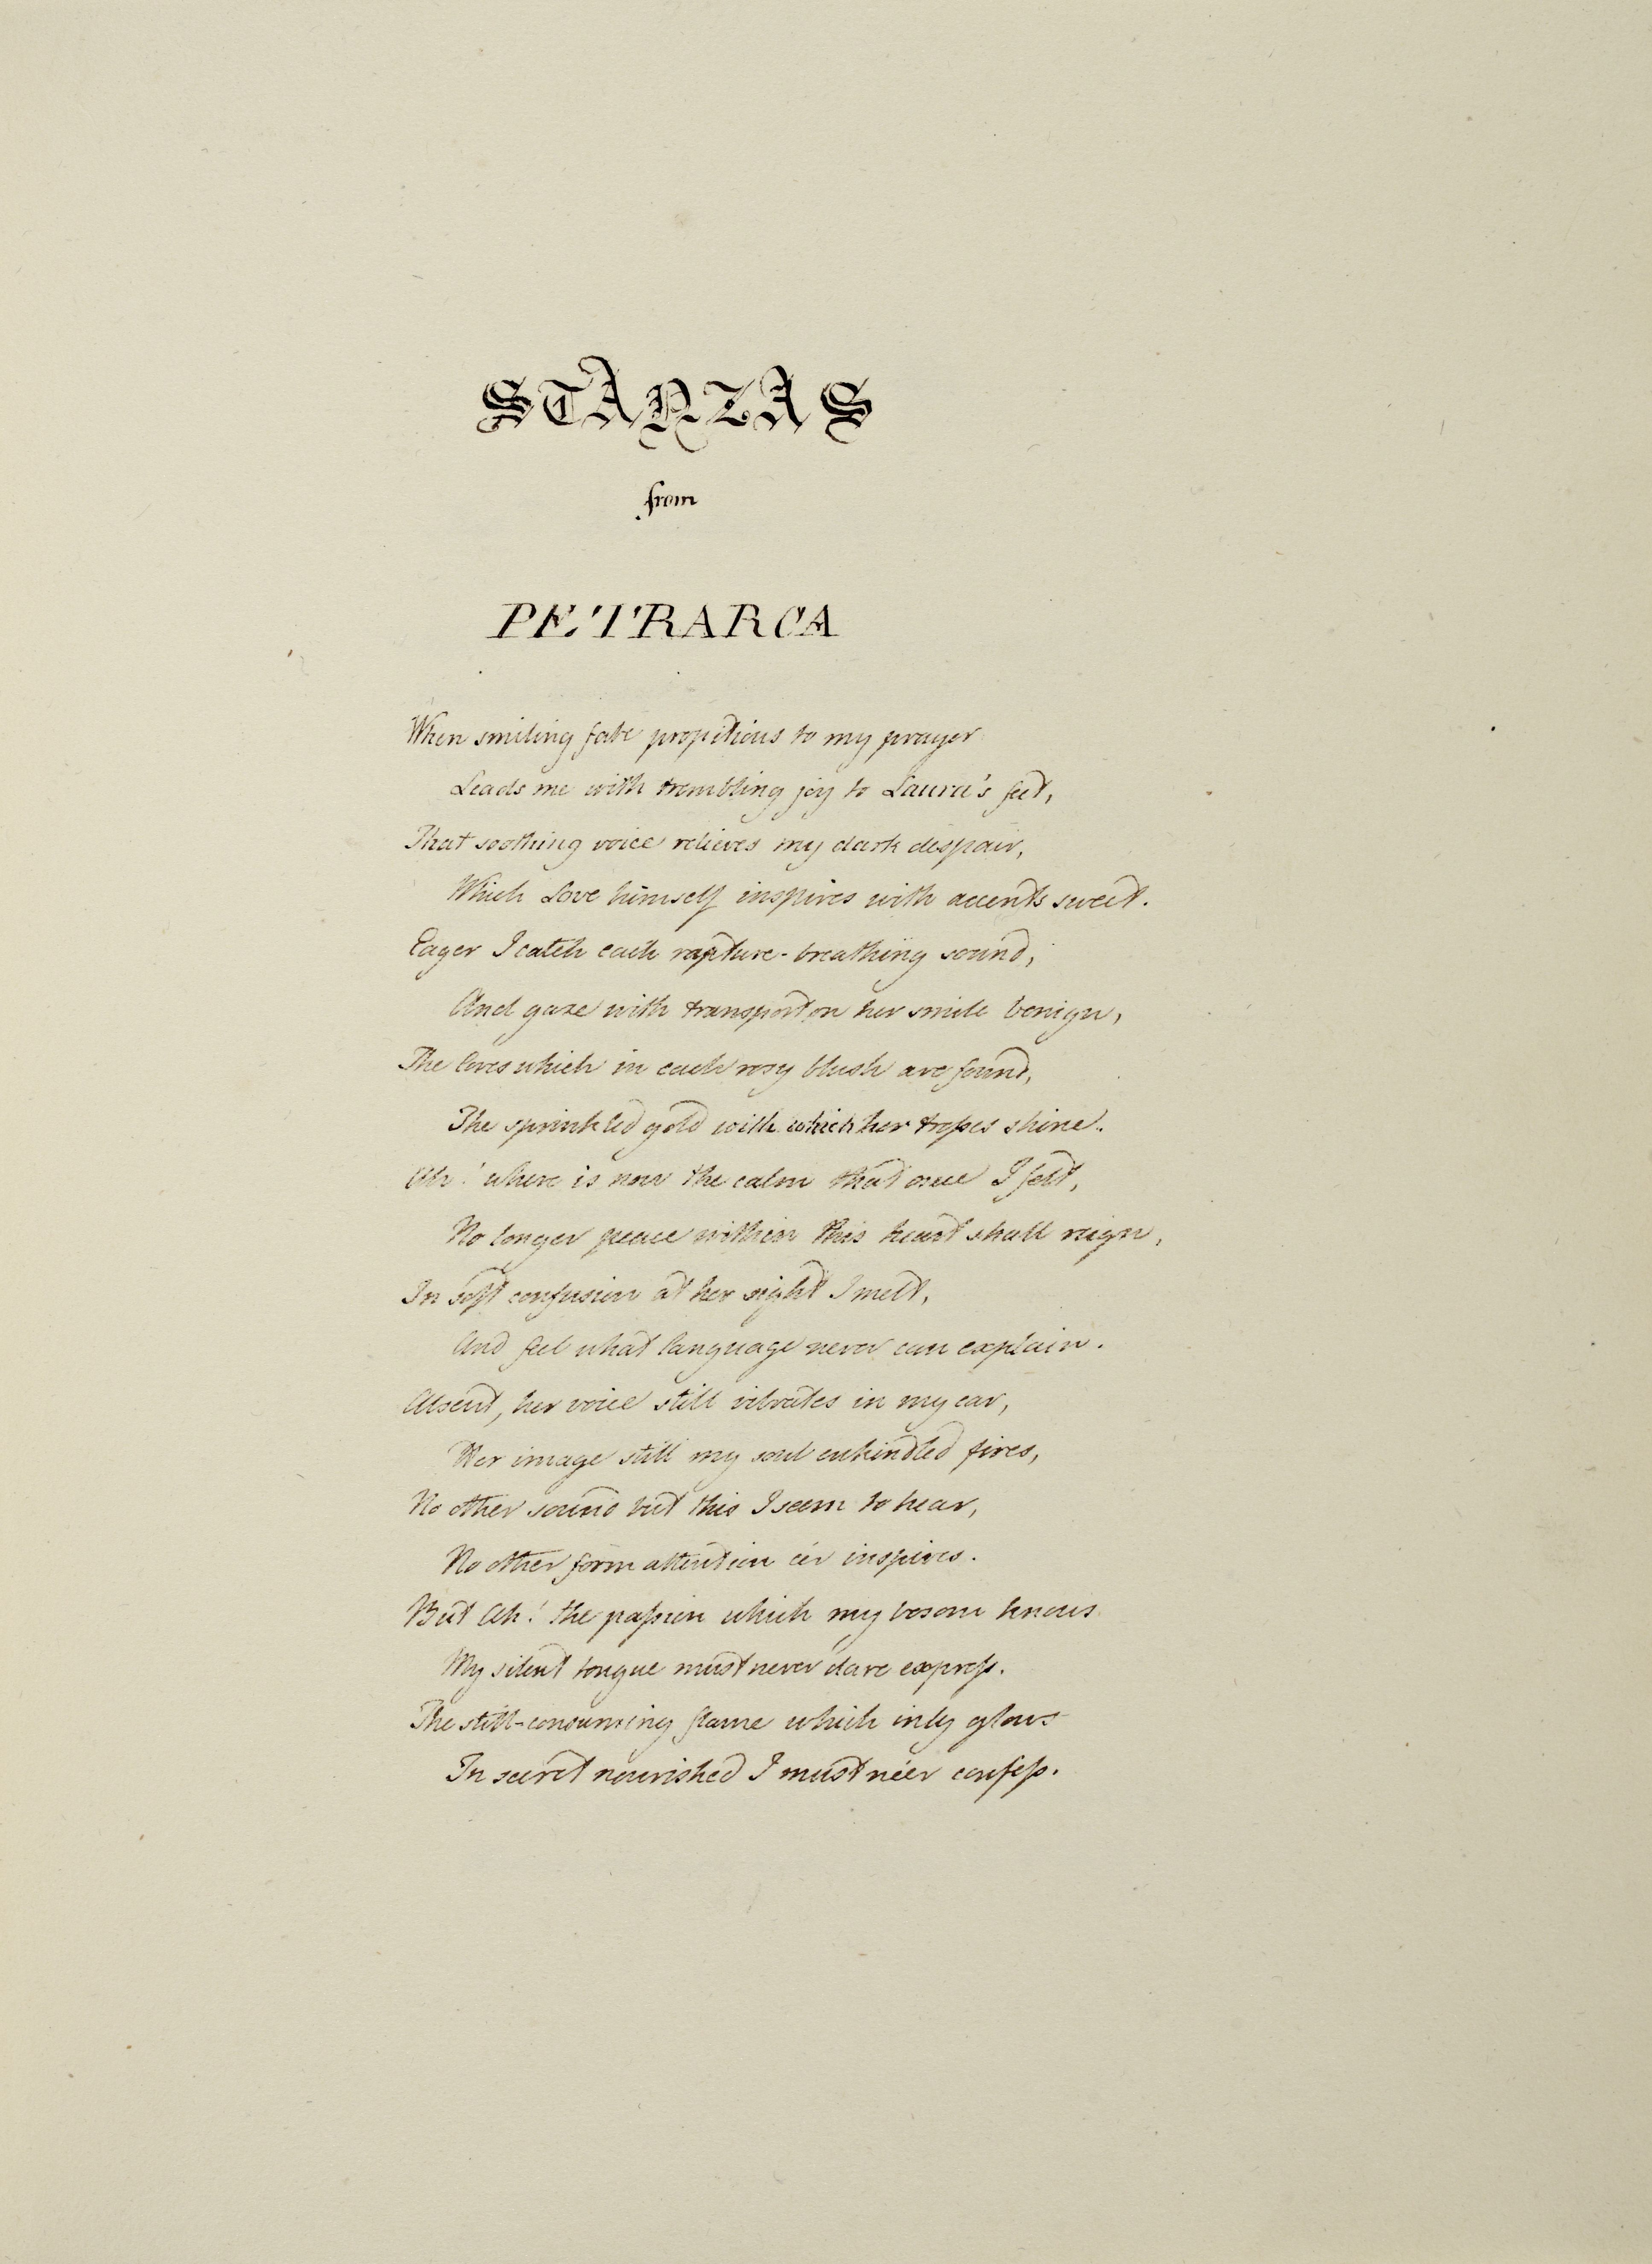 STANZAS
from
PETRARCA
When smiling fate propitious to my prayer
Leads me with trembling joy to Laura's feet,
That soothing voice relieves my dark despair,
Which Love himself inspires with accents sweet.
Eager I catch each rapture-breathing sound,
And gaze with transport on her smile benign,
The loves which in each rosy blush are found,
The sprinkled gold with which her treſses shine.
Ah! where is now the calm that once I felt,
No longer peace within this heart shall reign,
In soft confusion at her sight I melt,
And feel what language never can explain.
Absent, her voice still vibrates in my ear,
Her image still my soul enkindled fires,
No other sound but this I seem to hear,
No other form attention e'er inspires.
But Ah! the paſsion which my bosom knows
My silent tongue must never dare expreſs.
The still-consuming flame which inly glows
In secret nourished I must ne'er confeſs.